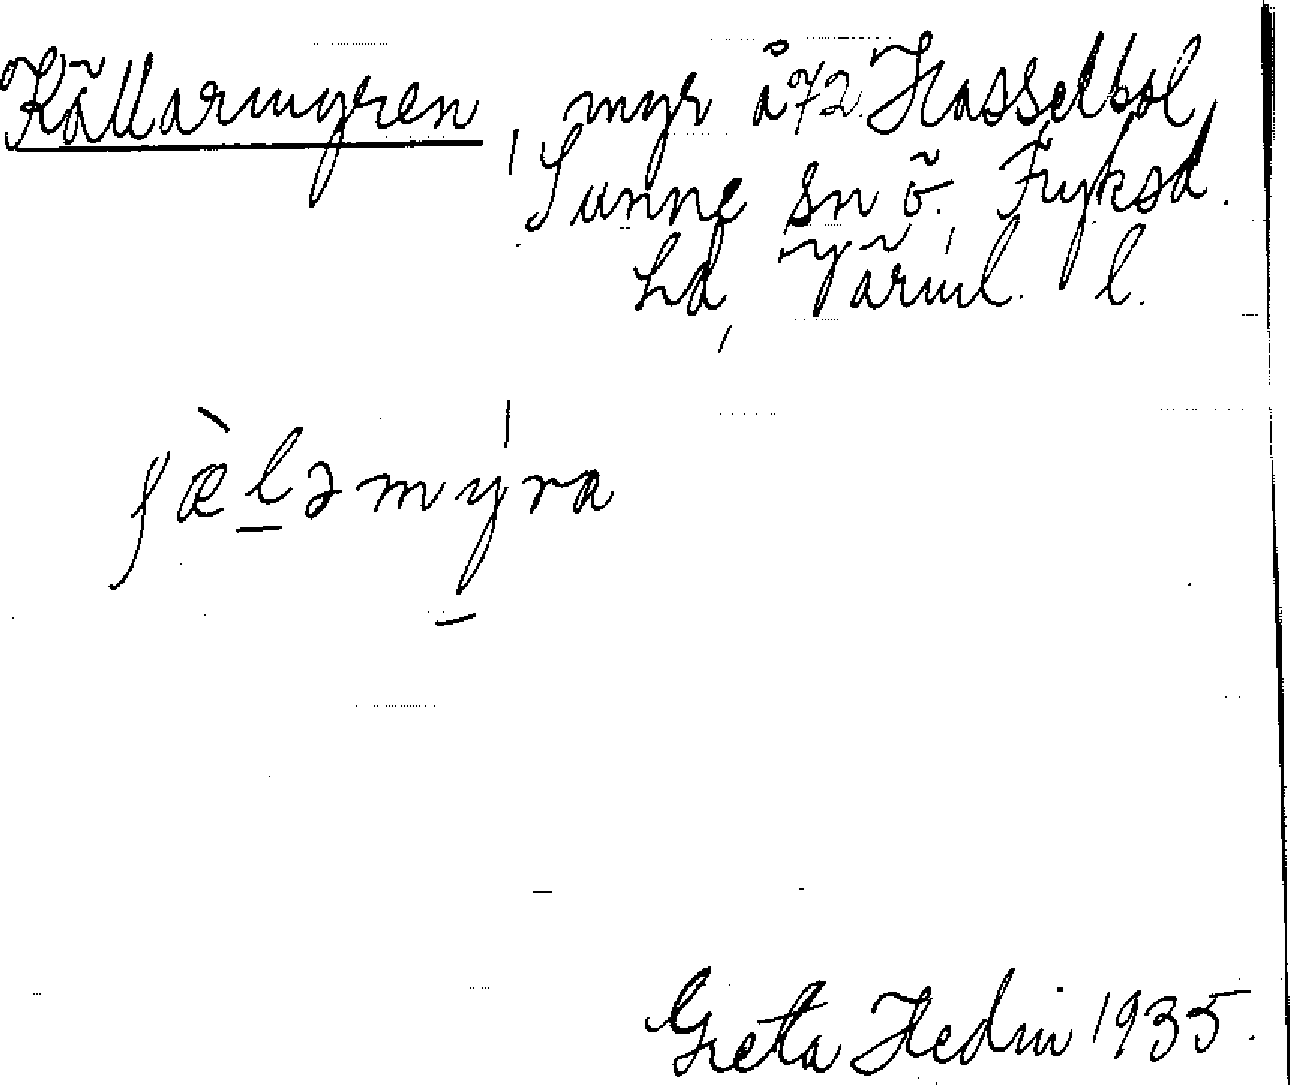 Källarmyren, myr å 72. Hasselbol,
Sunne sn ö. Fryksd.
hd, Värml. l.
ʃæ̀lǝmýra
Greta Hedin 1935.